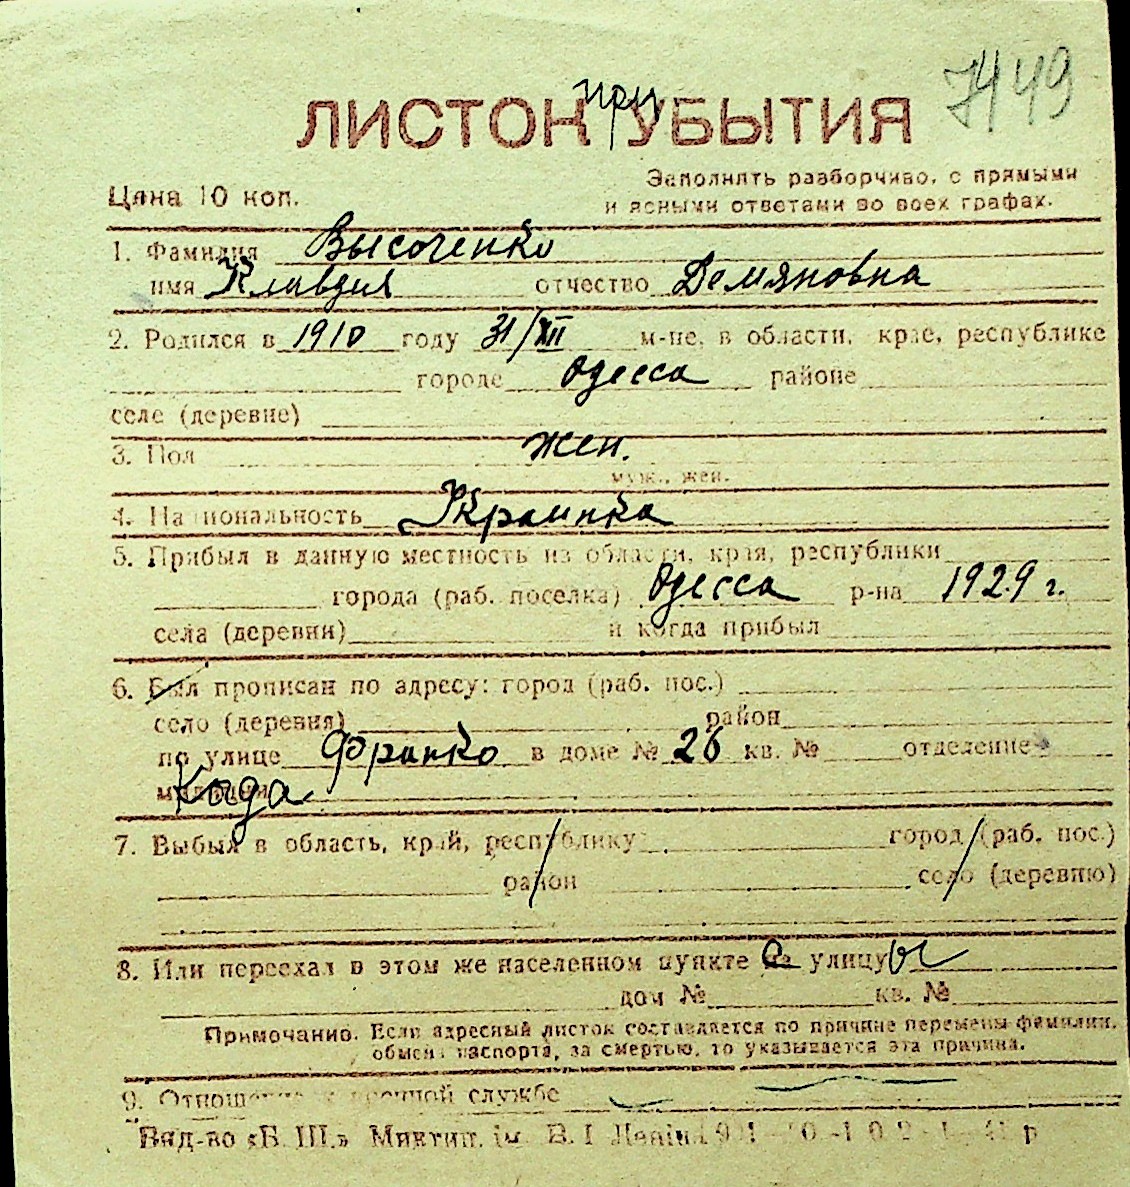 7449
при
ЛИСТОК УБЫТИЯ
Цена 10 коп.
Заполнять разборчиво, с прямыми
и ясными ответами во всех графах.
1. Фамилия Высоченко
имя Клавдия отчество Демяновна
2. Родился в 1910 году 31/XII м-це, в области, крае, республике
городе Одесса районе
селе (деревне)
3. Пол жен.
муж., жен.
4. Национальность Украинка
5. Прибыл в данную местность из области, края, республики
города (раб. поселка) Одесса р-на 1929 г.
села (деревни) и когда прибыл
6. Был прописан по адресу: город (раб. пос.)
село (деревня) район
по улице Франко в доме № 26 кв. № отделение
милиции
7. Выбыл в область, край, республику город (раб. пос.)
район село (деревню)
8. Или переехал в этом же населенном пункте на с улицу ы
дом № кв. №
Примечание. Если адресный листок составляется по причине перемены фамилии,
обмена паспорта, за смертью, то указывается эта причина.
9. Отношение к военной службе
Вид-во «Б. Ш.» Миктип. ім. В. І. Леніна